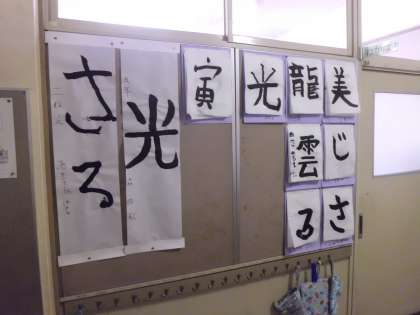 美
じ
さ
龍
雲
る
光
寅
光
さる